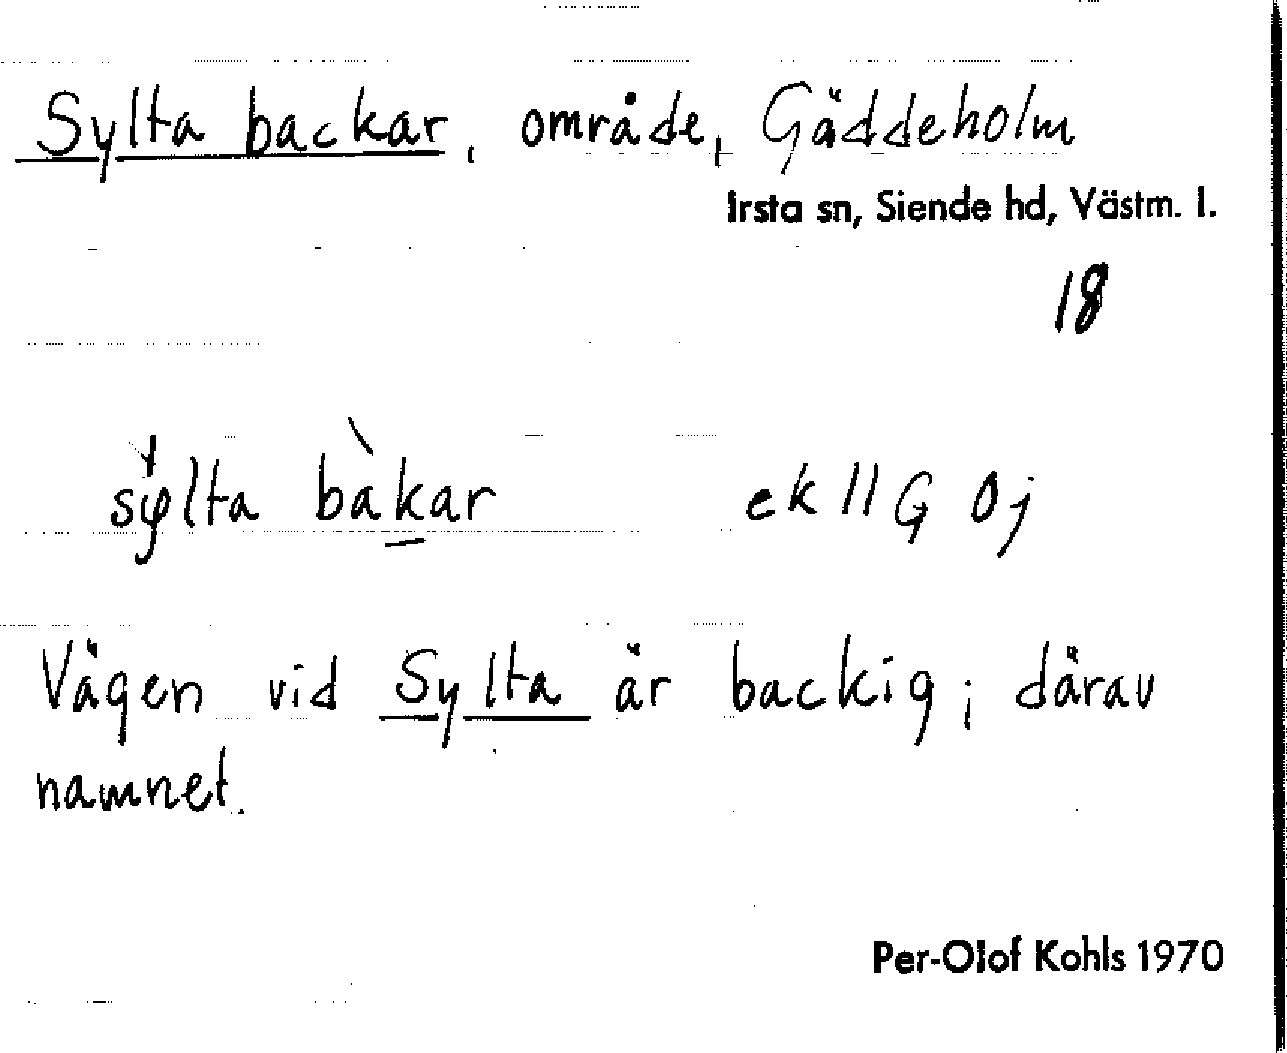 Sylta backar, område, Gäddeholm
Irsta sn, Siende hd, Västm. l.
18
sylta bàkar ek ll G Oj
Vägen vid Sylta är backig; därav
namnet.
Per-Olof Kohls 1970